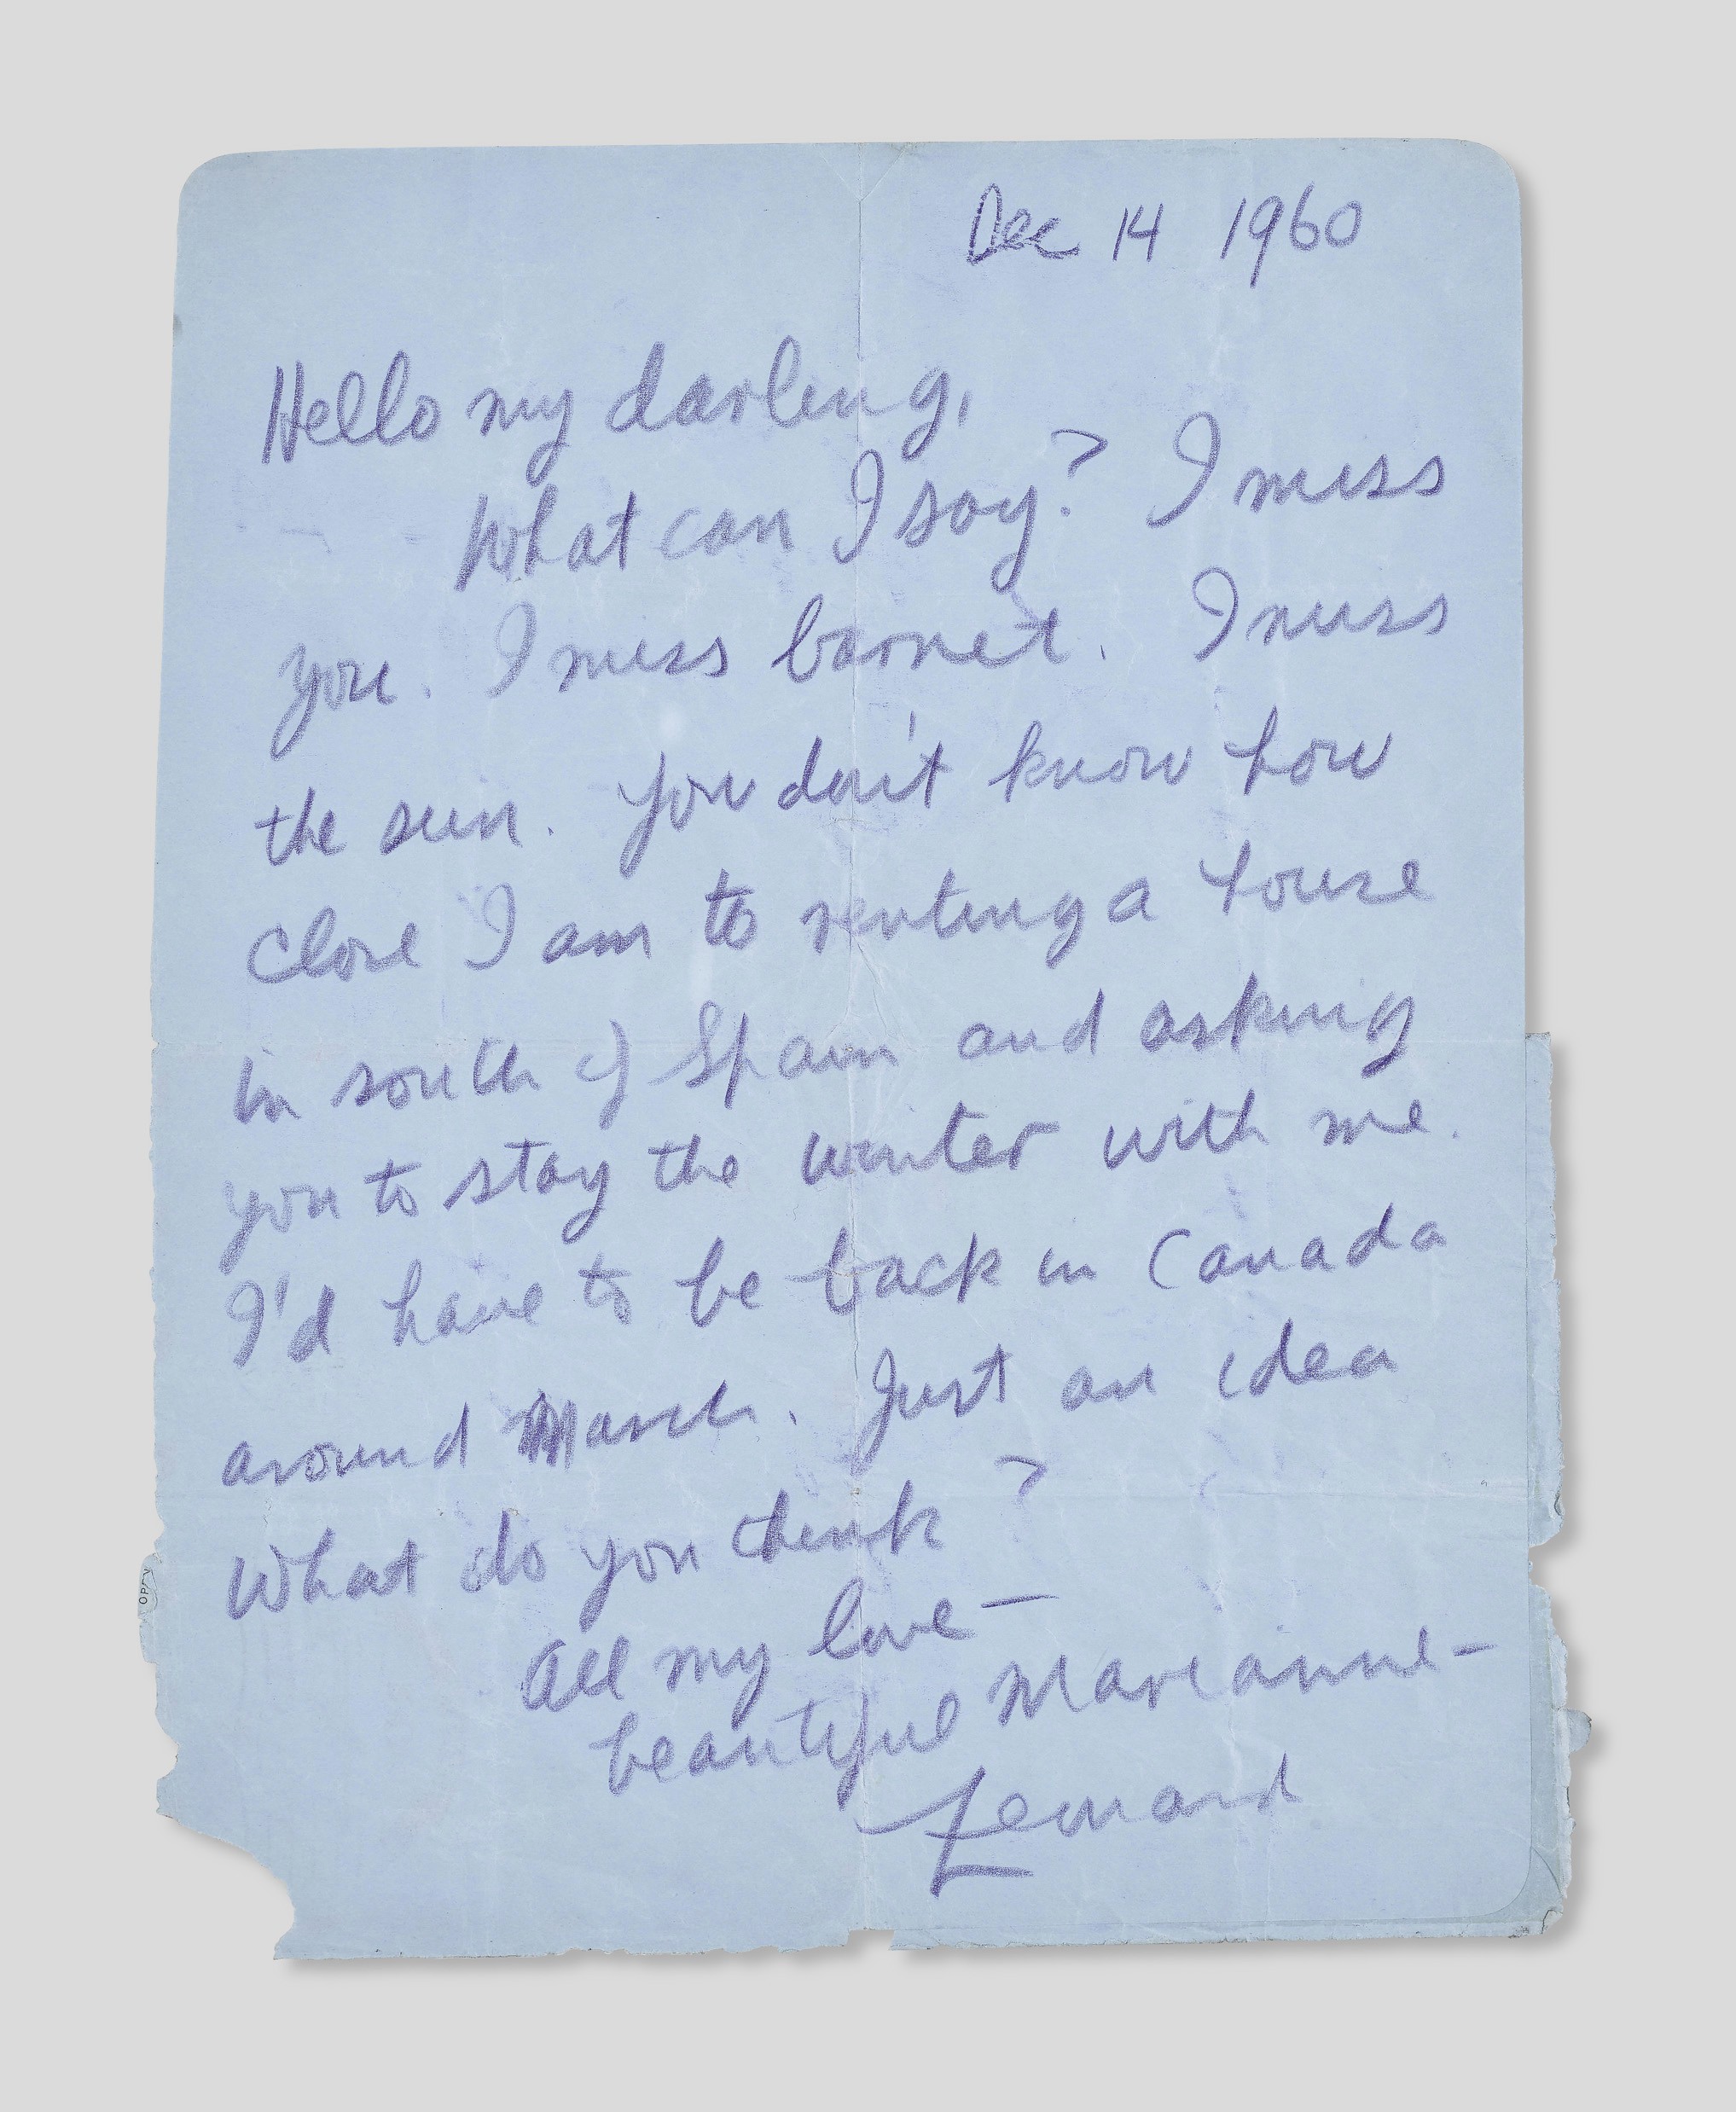 Dec 14 1960
Hello my darling,
What can I say? I miss
you. I miss barnet. I miss
the sun. You don't know how
close I am to renting a house
in south of Spain and asking
you to stay the winter with me.
I'd have to be back in Canada
around March. Just an idea
What do you think?
All my love —
beautiful Marianne —
Leonard